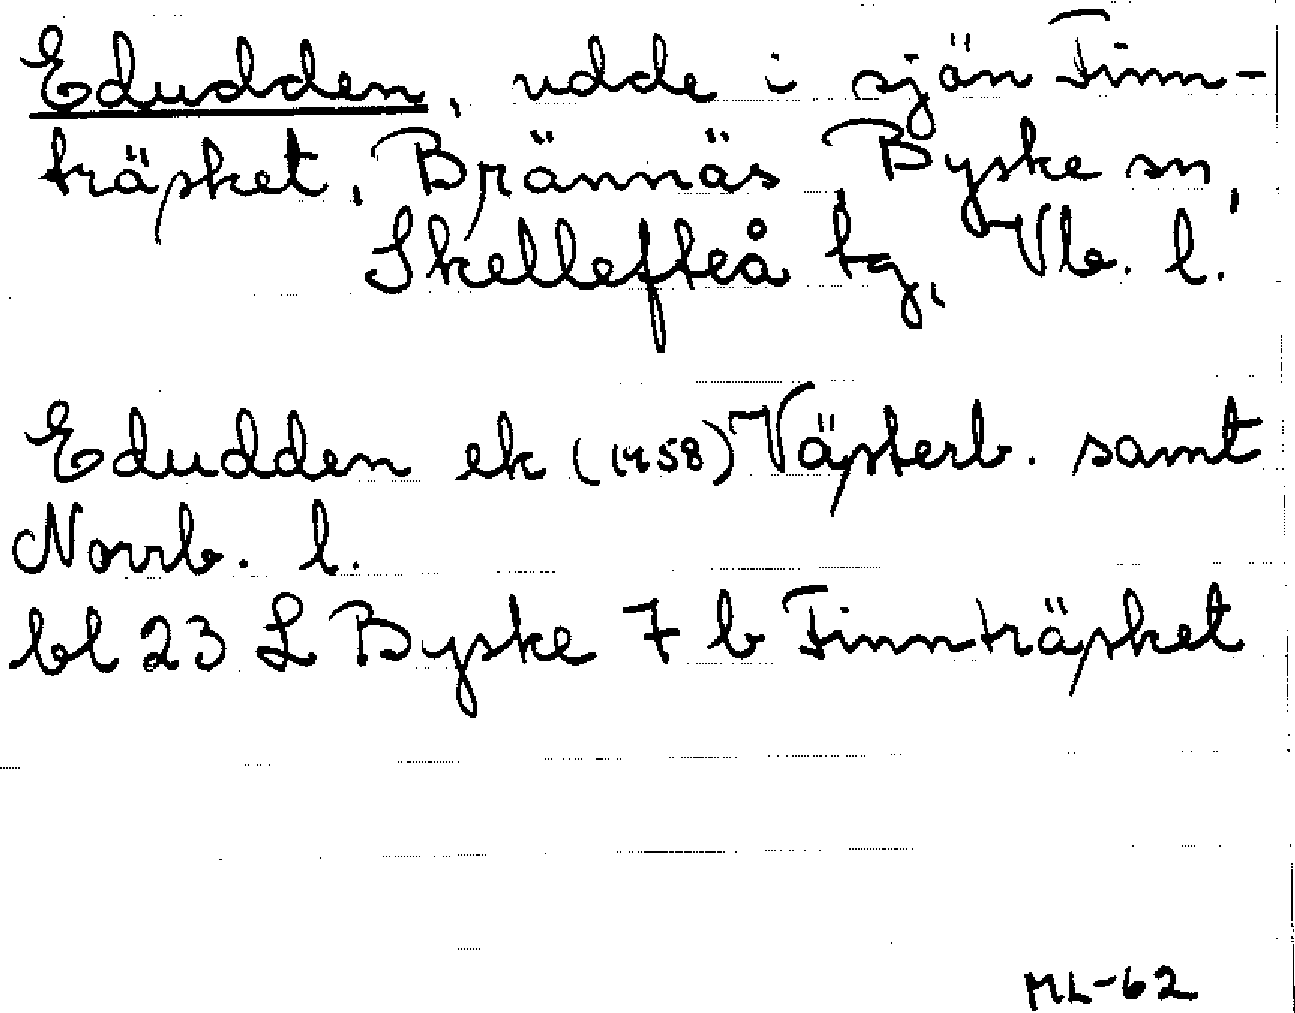 Edudden, udde i sjön Finn-
träsket, Brännäs, Byske sn,
Skellefteå tg, Vb. l.
Edudden ek (1958) Västerb. samt
Norrb. l.
bl 23 L Byske 7 b Finnträsket
ML-62